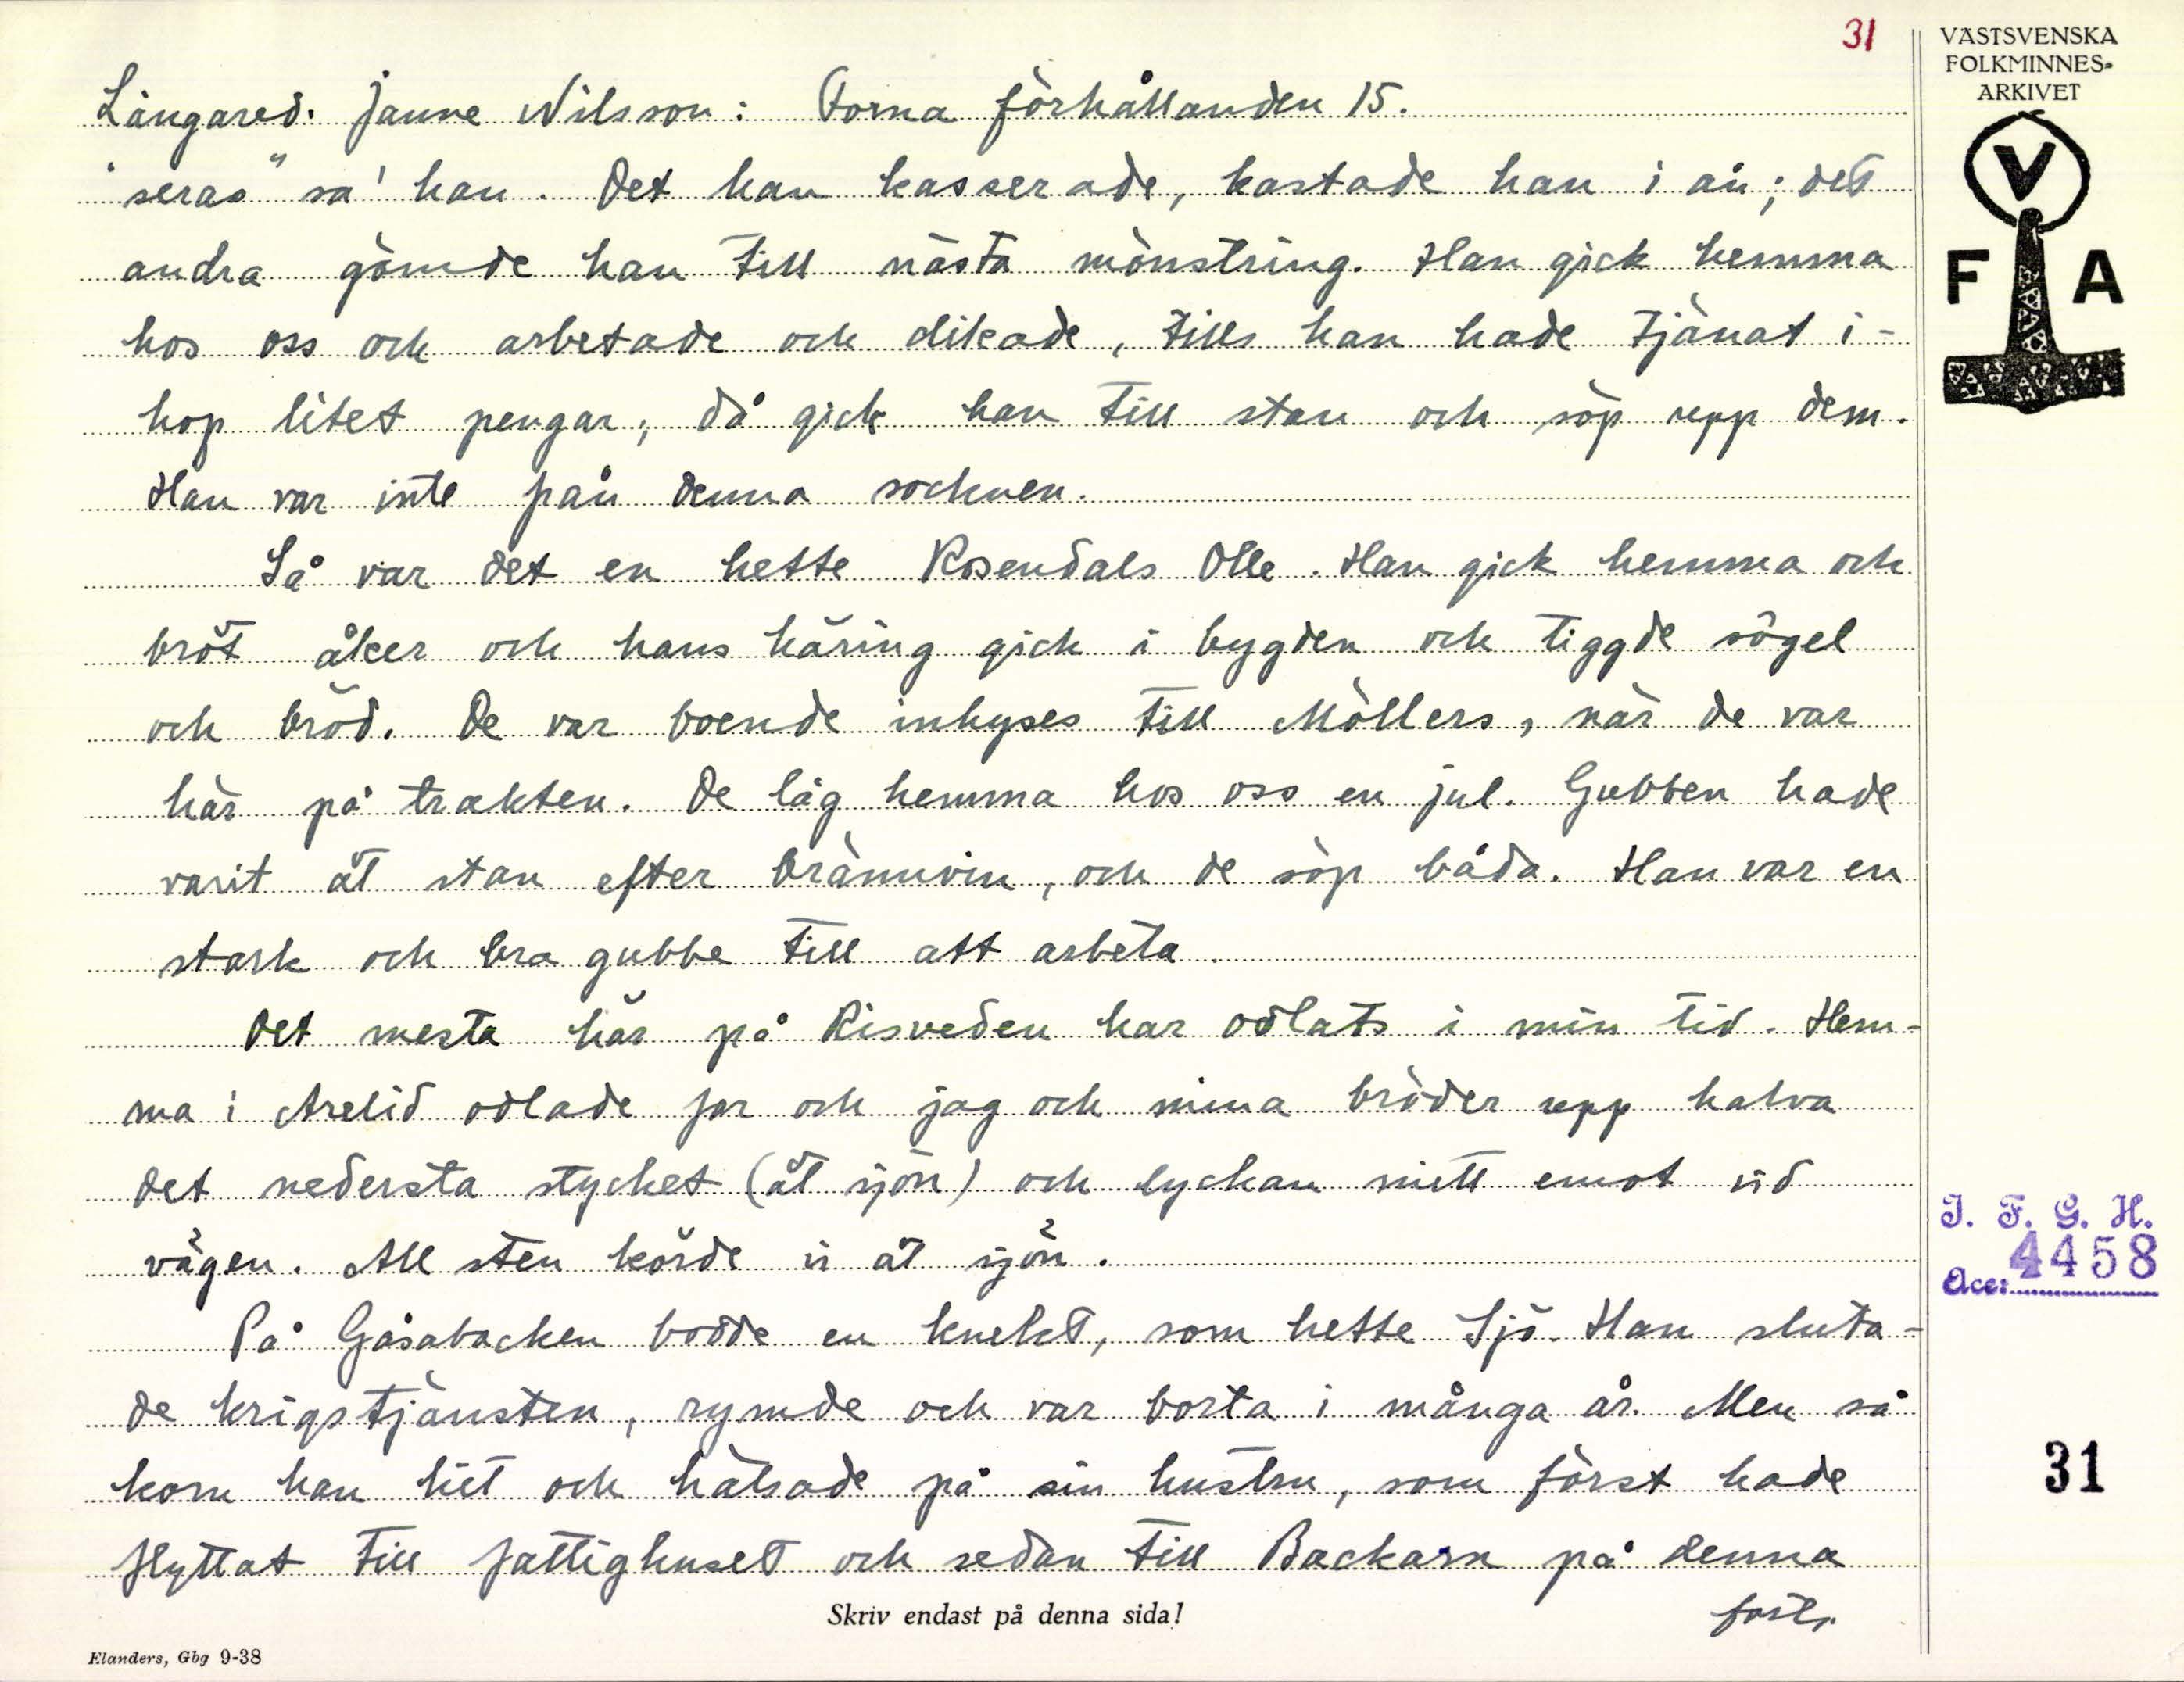 31
VÄSTSVENSKA
FOLKMINNES-
ARKIVET
V
F A
Långared. Janne Nilsson: Forna förhållanden 15.
"seras" sa' han. Det han kasserade, kastade han i ån; det
andra gömde han till nästa mönstring. Han gick hemma
hos oss och arbetade och dikade, tills han hade tjänat i-
hop litet pengar, då gick han till stan och söp upp dem.
Han var inte från denna socknen.
Så var det en hette Rosendals Olle. Han gick hemma och
bröt åker och hans käring gick i bygden och tiggde sôgel
och bröd. De var boende inhyses till Möllers, när de var
här på trakten. De låg hemma hos oss en jul. Gubben hade
varit åt stan efter brännvin, och de söp båda. Han var en
stark och bra gubbe till att arbeta.
Det mesta här på Risveden har odlats i min tid. Hem-
ma i Arelid odlade far och jag och mina bröder upp halva
det nedersta stycket (åt sjön) och lyckan mitt emot vid
vägen. All sten körde vi åt sjön.
På Gåsabacken bodde en knekt, som hette Sjö. Han sluta-
de krigstjänsten, rymde och var borta i många år. Men så
kom han hit och hälsade på sin hustru, som först hade
flyttat till fattighuset och sedan till Backarn på denna
forts.
Skriv endast på denna sida!
Elanders, Gbg 9-38
I. F. G. H.
Acc: 4458
31